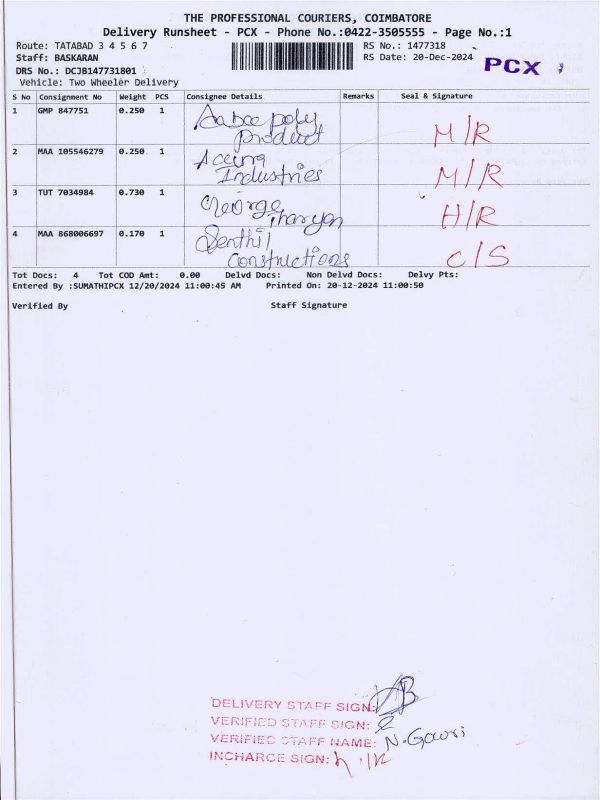 THE PROFESSIONAL COURIERS, COIMBATORE
Delivery Runsheet - PCX - Phone No.:0422-3505555 - Page No.:1
Route: TATABAD 3 4 5 6 7 RS No.: 1477318
Staff: BASKARAN RS Date: 20-Dec-2024 PCX
DRS No.: DCJB147731801
Vehicle: Two Wheeler Delivery
S No Consignment No Weight PCS Consignee Details Remarks Seal & Signature
1 GMP 847751 0.250 1 poly
Product M/R
2 MAA 105546279 0.250 1
Industries M/R
3 TUT 7034984 0.730 1 George
Tharyan H/R
4 MAA 868006697 0.170 1 Senthil
Constructions C/S
Tot Docs: 4 Tot COD Amt: 0.00 Delvd Docs: Non Delvd Docs: Delvy Pts:
Entered By :SUMATHIPCX 12/20/2024 11:00:45 AM Printed On: 20-12-2024 11:00:50
Verified By Staff Signature
DELIVERY STAFF SIGN:
VERIFIED STAFF SIGN:
VERIFIED STAFF NAME: N.Gowri
INCHARGE SIGN: